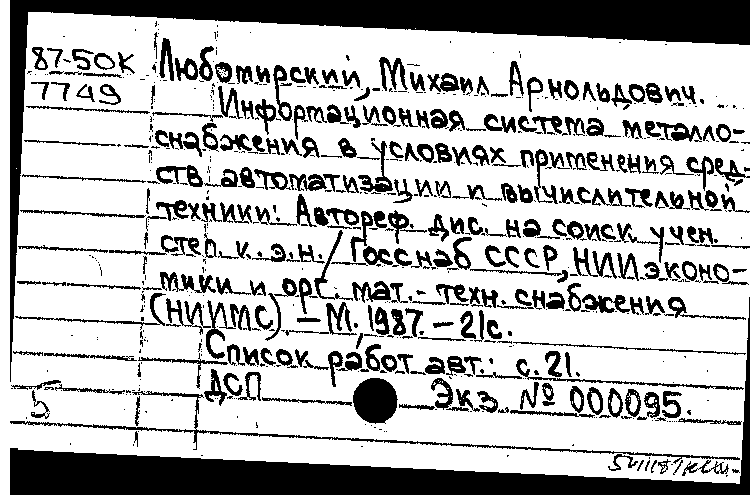 87-50К
7749
Любомирский, Михаил Арнольдович.
Информационная система металло-
снабжения в условиях применения сред-
ств автоматизации и вычислительной
техники: Автореф. дис. на соиск. учен.
степ. к.э.н. / Госснаб СССР, НИИ эконо-
мики и орг. мат.-техн. снабжения
(НИИМС) – М. 1987. – 21с.
Список работ авт.: с. 21.
ДСП Экз. № 000095.
5